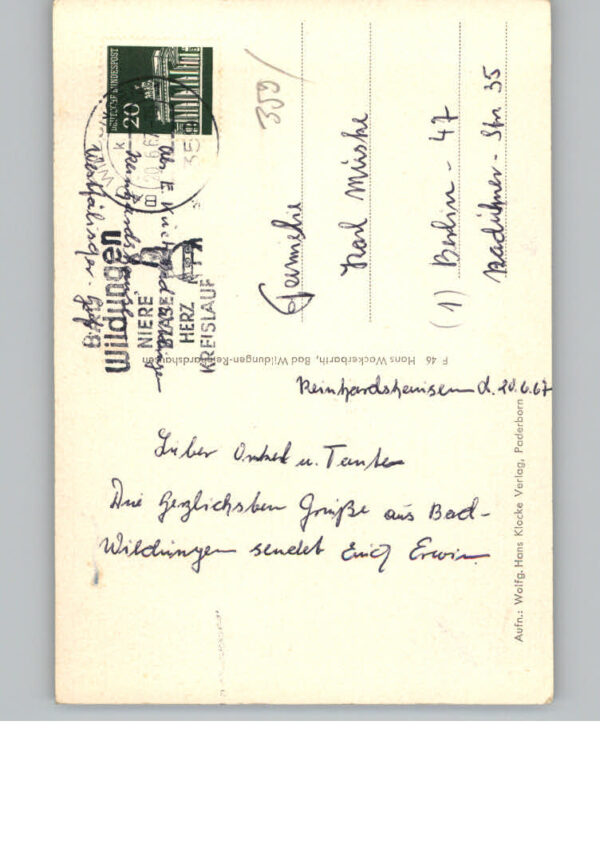 Reinhardshausen d. 20.6.67
Lieber Onkel u. Tante
Die herzlichsten Grüße aus Bad-
Wildungen sendet Euch Erwin
Familie
Karl Müske
(1) Berlin - 47
Str. 35
359/
DEUTSCHE BUNDESPOST
20
20.6.67
BAD
Wildungen
NIERE
BLASE
HERZ
KREISLAUF
Bad Wildungen
Reinhardshausen
Westfälischer Hof
F 46 Hans Wackerbarth, Bad Wildungen-Reinhardshausen
Aufn.: Wolfg. Hans Klocke Verlag, Paderborn